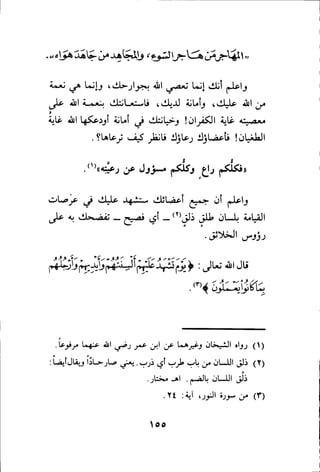 «القهار من قهر جوارحه
واعلم أنك إنما هي نعم الله وجوارحك، إنما نعمة
من الله عليك، وأمانة لديك، فاستعانتك بنعمة الله على
معصيته غاية الكفران! وخيانتك في أمانة أودعكها الله غاية
الطغيان! فأعضاؤك رعاياك، فانظر كيف ترعاها؟.
«فكلكم راع وكلكم مسؤول عن رعيته»(١).
واعلم أن جميع أعضائك ستشهد عليك في عرصات
القيامة بلسان طلق ذلق(٢) - أي فصيح - تفضحك به على
رؤوس الخلائق.
قال الله تعالى: ﴿يوم تشهد عليهم ألسنتهم وأيديهم وأرجلهم
بما كانوا يعملون﴾(٣).
(١) رواه الشيخان وغيرهما عن ابن عمر رضي الله عنهما مرفوعا.
(٢) ذلق اللسان من باب طرب أي ذرب. فهو صار حادا، ويقال أيضا:
ذلق اللسان بالضم. اهـ. مختار.
(٣) من سورة النور، آية: ٢٤.
١٥٥